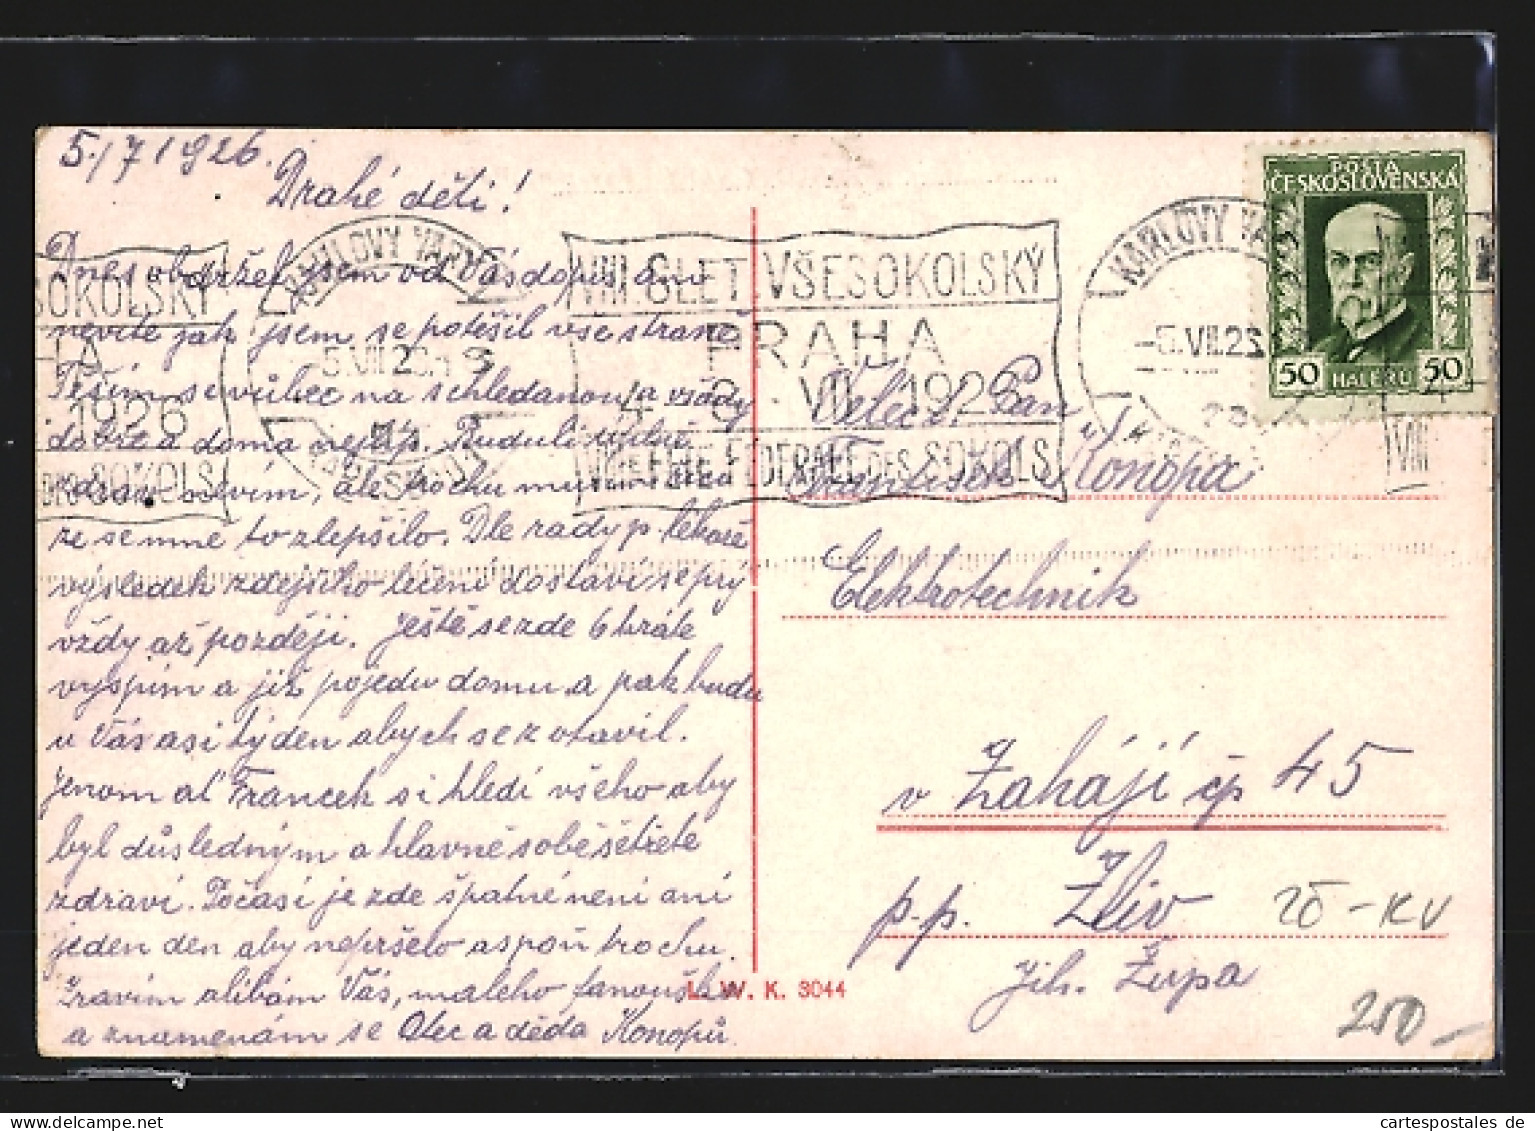 5./7 1926.
Drahé děti!
Dnes obdržel jsem od Vás dopis a ni
nevíte jak jsem se potěšil vše straně
Těším se vůbec na shledanou a vždy
dobře a doma nejlíp. Budu li úplně
zdráv nevím, ale trochu musím říci
že se mne to zlepšilo. Dle rady p. lékaře
výsledek zdejšího léčení dostaví se prý
vždy až později. Ještě se zde 6 kráte
vyspím a již pojedu domu a pak budu
u Vás asi týden abych se zotavil.
Jenom ať Francek si hledí všeho aby
byl důsledným a hlavně sobě šetřete
zdraví. Počasí je zde špatné není ani
jeden den aby nepršelo aspoň trochu.
Zdravím a líbám Vás, malého fanouška
a znamenám se Otec a děda Konopů.
SOKOLSKÝ
HA
1926
DES SOKOLS
KARLOVY VARY
5.VII.26.-19
KARLSBAD
VIII. SLET VŠESOKOLSKÝ
PRAHA
4. - 8. VII. 1926
VIIIE FÊTE FÉDÉRALE DES SOKOLS
KARLOVY VARY
-5.VII.26
POŠTA
ČESKOSLOVENSKÁ
50 HALÉŘŮ 50
VIII
Velect. Pan
František Konopa
Elektrotechnik
v Zahájí čp 45
p.p. Zliv
Jih. Župa
L. W. K. 3044
ZO - KV
250 -
cartespostales de